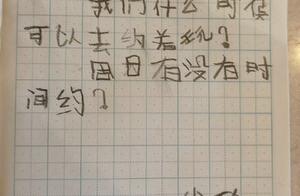 我们什么时候
可以去约差玩？
周日有没有时
间约？